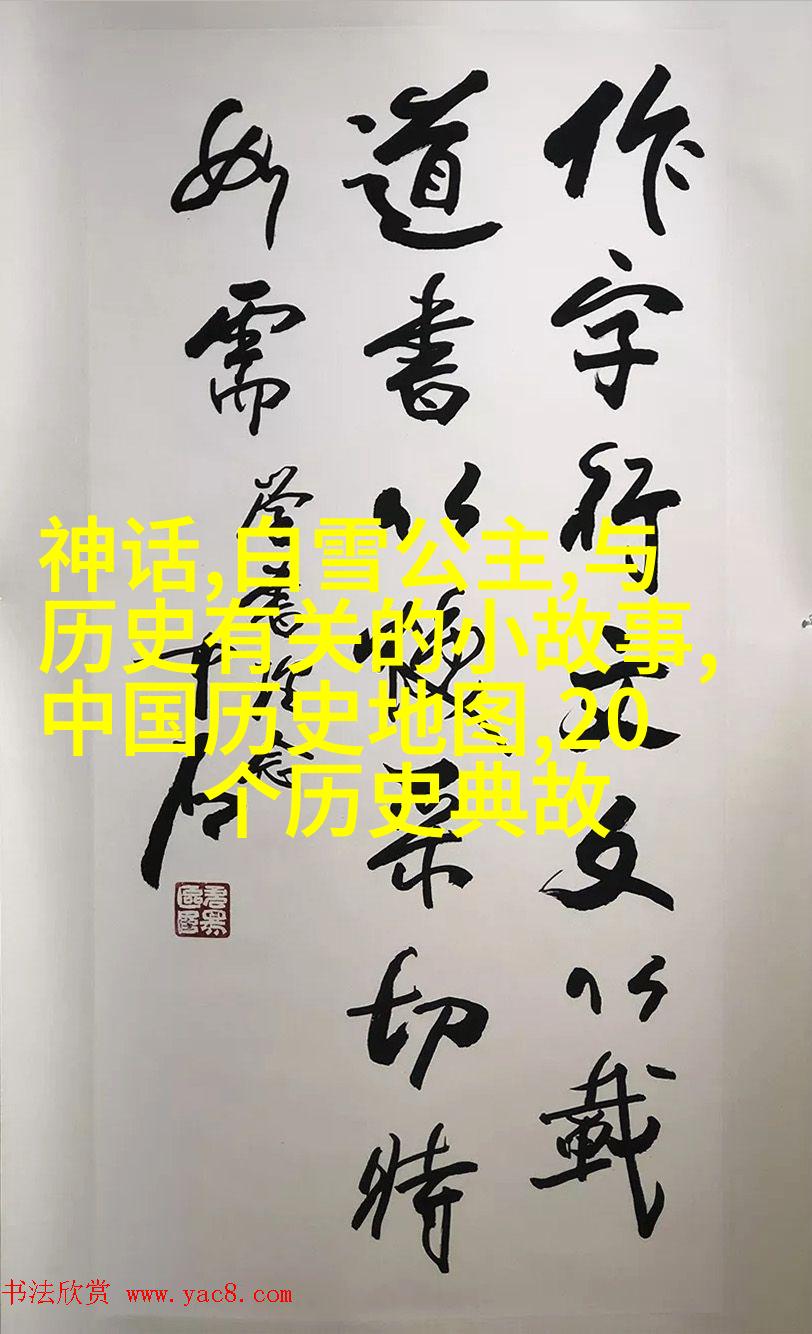 作字行文文以載
道書以煥采切時
如需
中石
神话,白雪公主,与
历史有关的小故事,
中国历史地图,20
个历史典故
书法欣赏 www.yac8.com